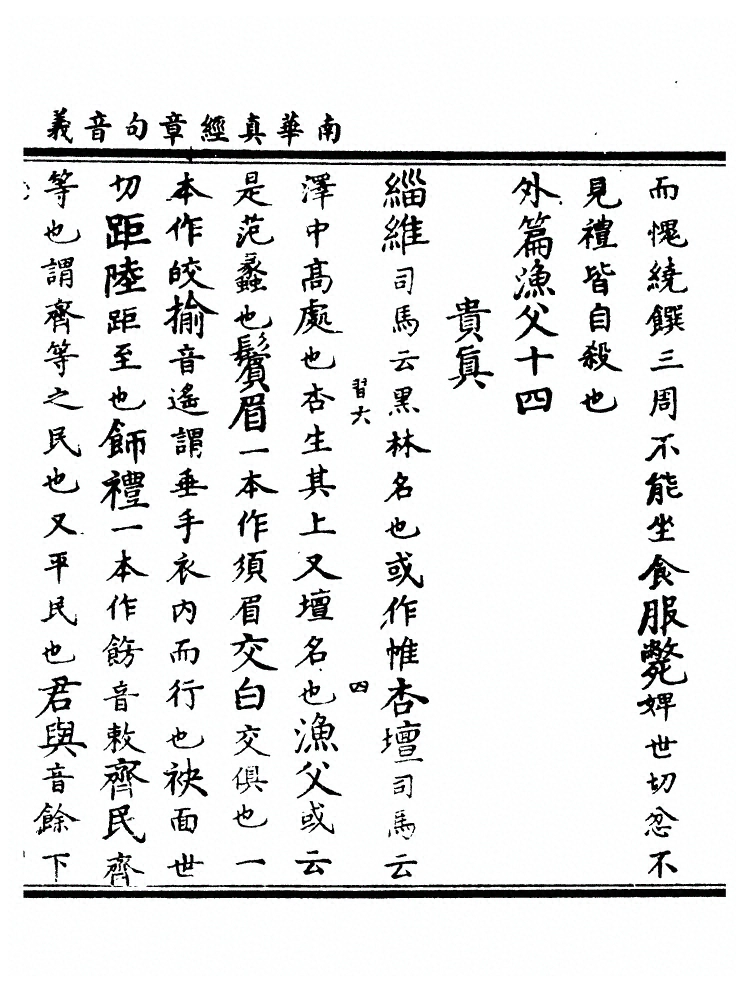 南華真經章句音義
而愧繞饌三周不能坐食服斃婢世切忿不
見禮皆自殺也
外篇漁父十四
貴真
緇維司馬云黑林名也或作惟杏壇司馬云
習六
四
澤中高處也杏生其上又壇名也漁父或云
是范蠡也鬢眉一本作須眉交白交俱也一
本作皎揄音遙謂垂手衣內而行也袂面世
切距陸距至也飾禮一本作餝音敕齊民齊
等也謂齊等之民也又平民也君與音餘下